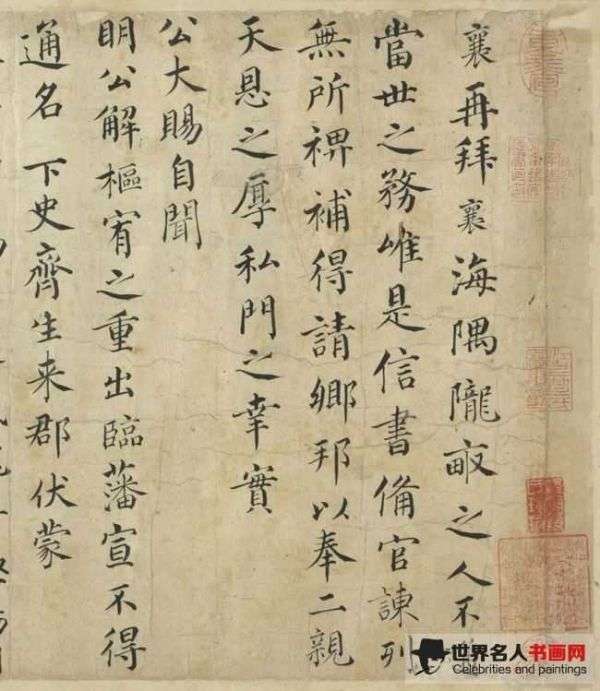 襄再拜襄海隅隴畝之人不
當世之務唯是信書備官諫列
無所裨補得請鄉邦以奉二親
天恩之厚私門之幸實
公大賜自聞
明公解樞宥之重出臨藩宣不得
通名下史齊生来郡伏蒙
世界名人书画网
Celebrities and paintings